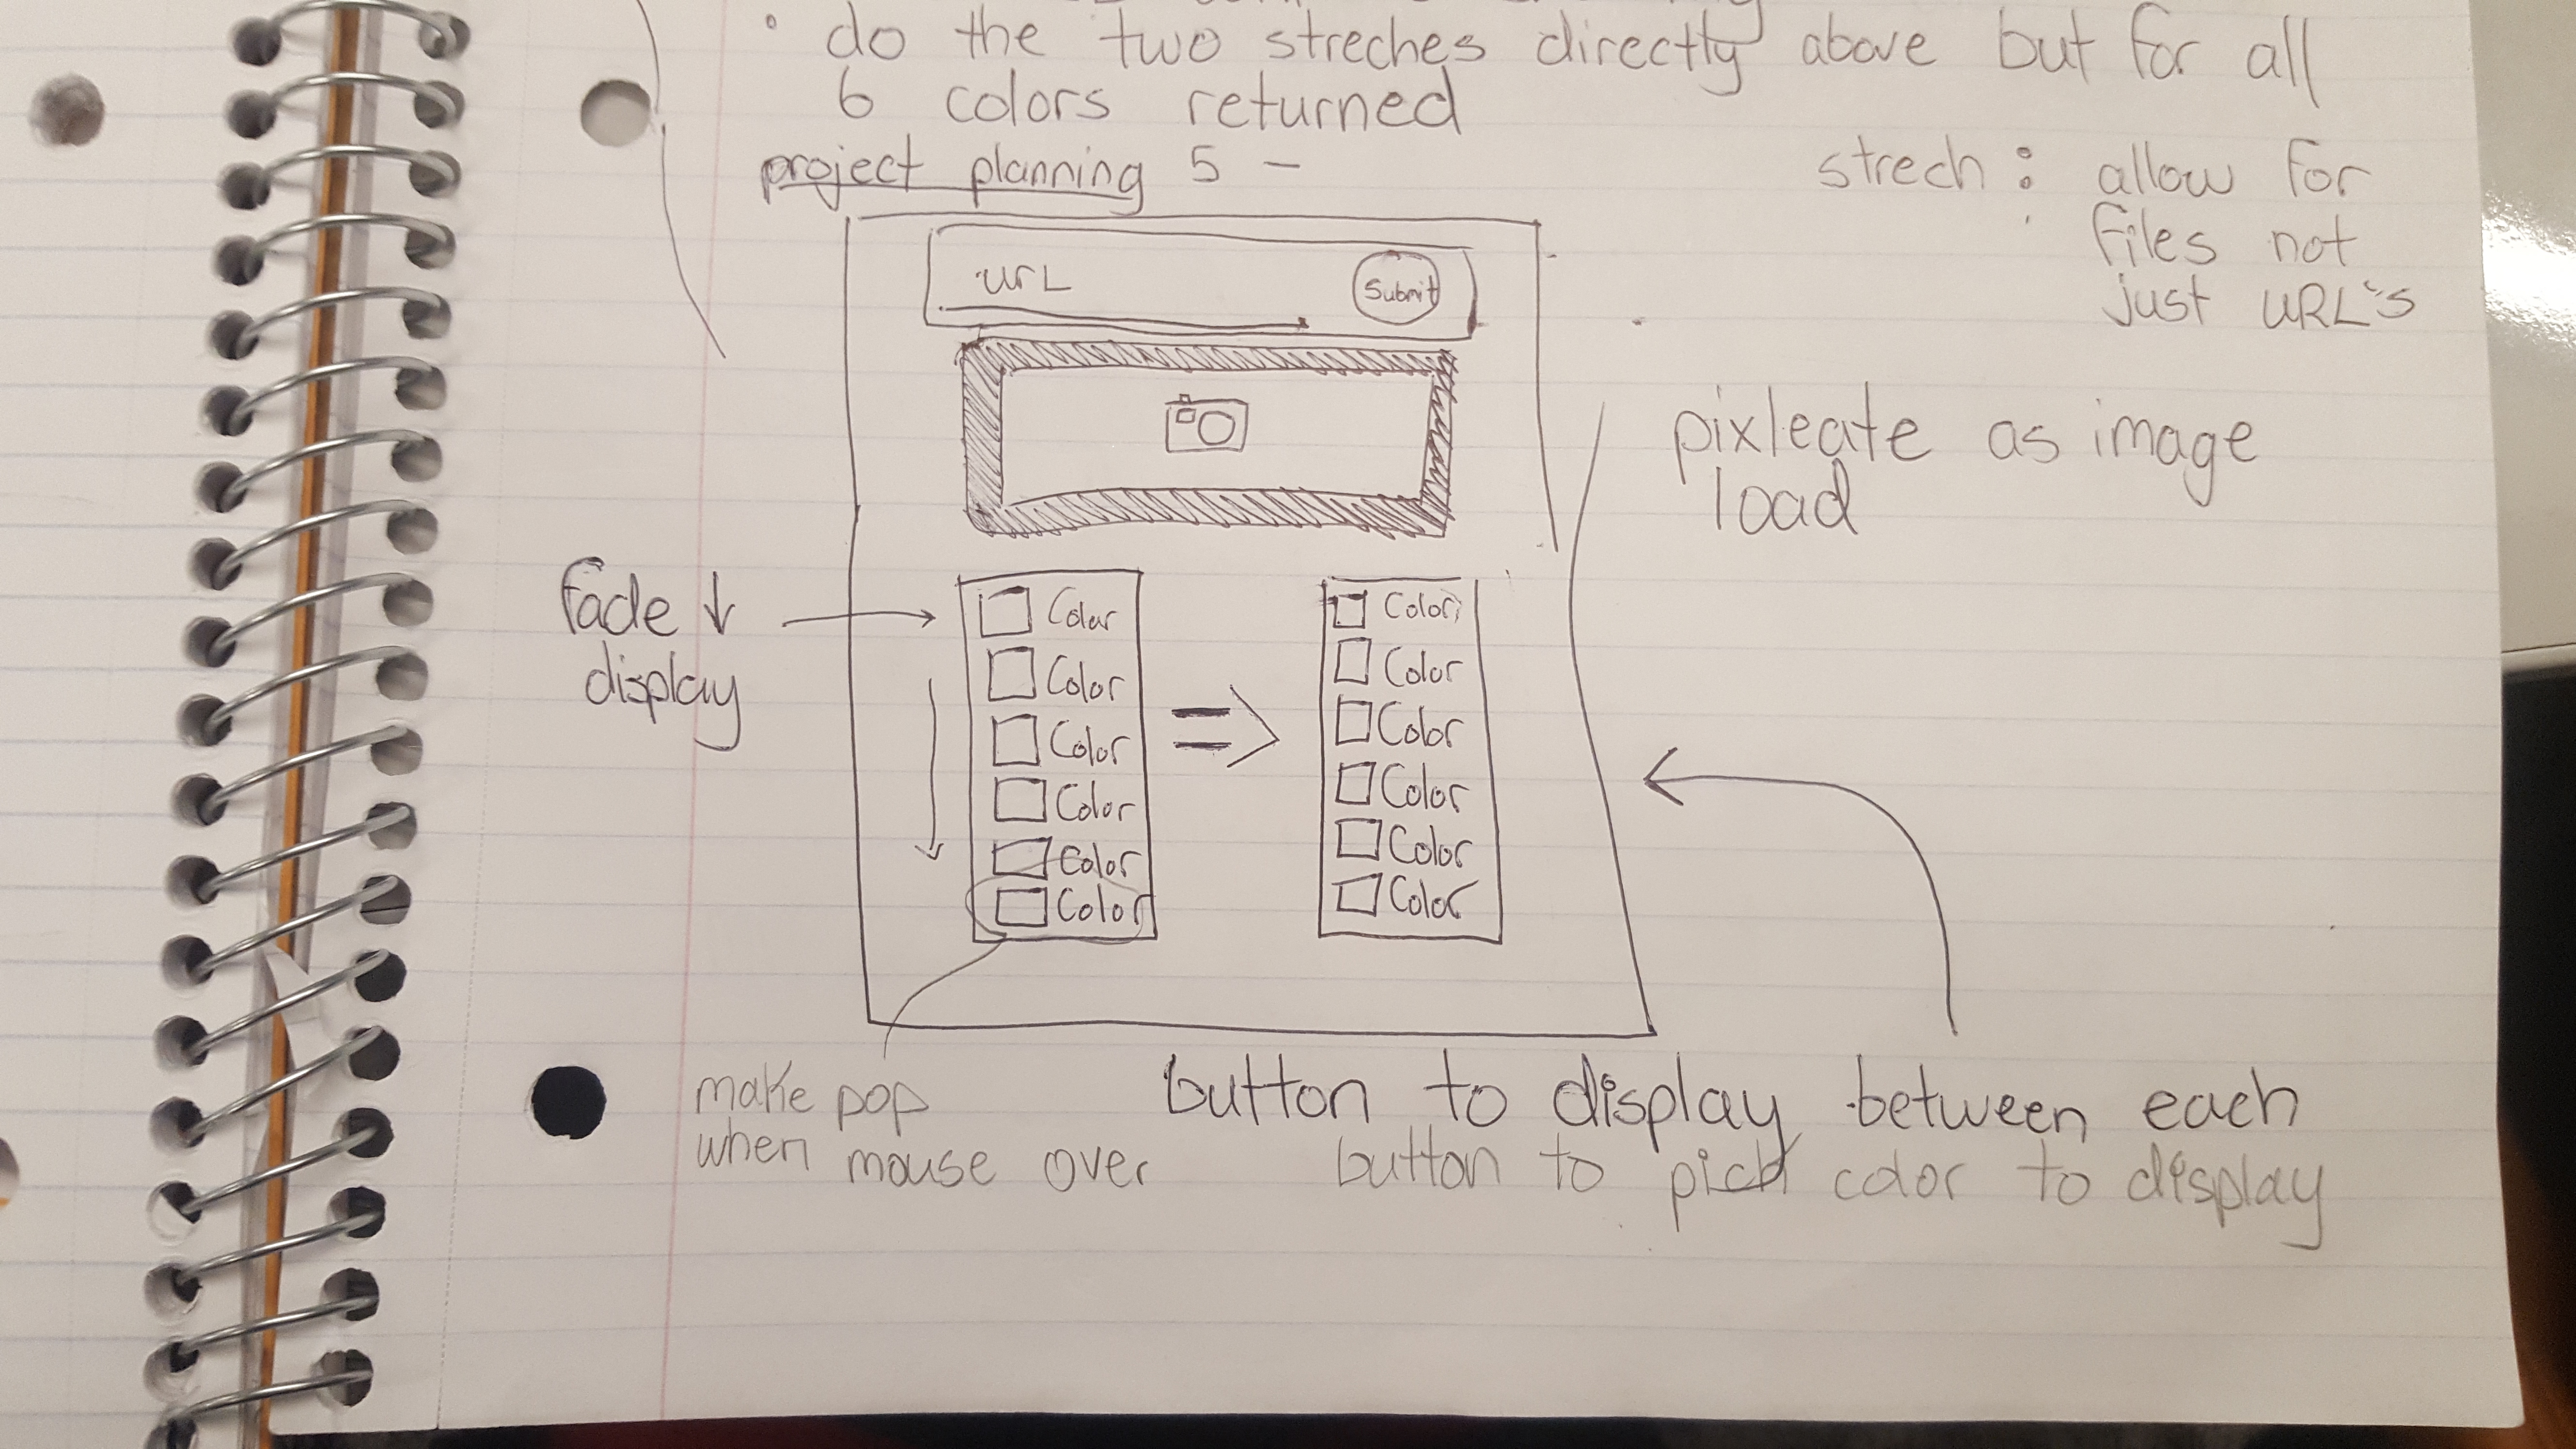 · do the two streches directly above but for all
6 colors returned
project planning 5 -
strech : allow for
files not
just URL's
URL
Submit
pixleate as image
load
fade ↓
display
Color
Color
Color
Color
Color
Color
Color
Color
Color
Color
Color
Color
make pop
when mouse over
button to display between each
button to pick color to display